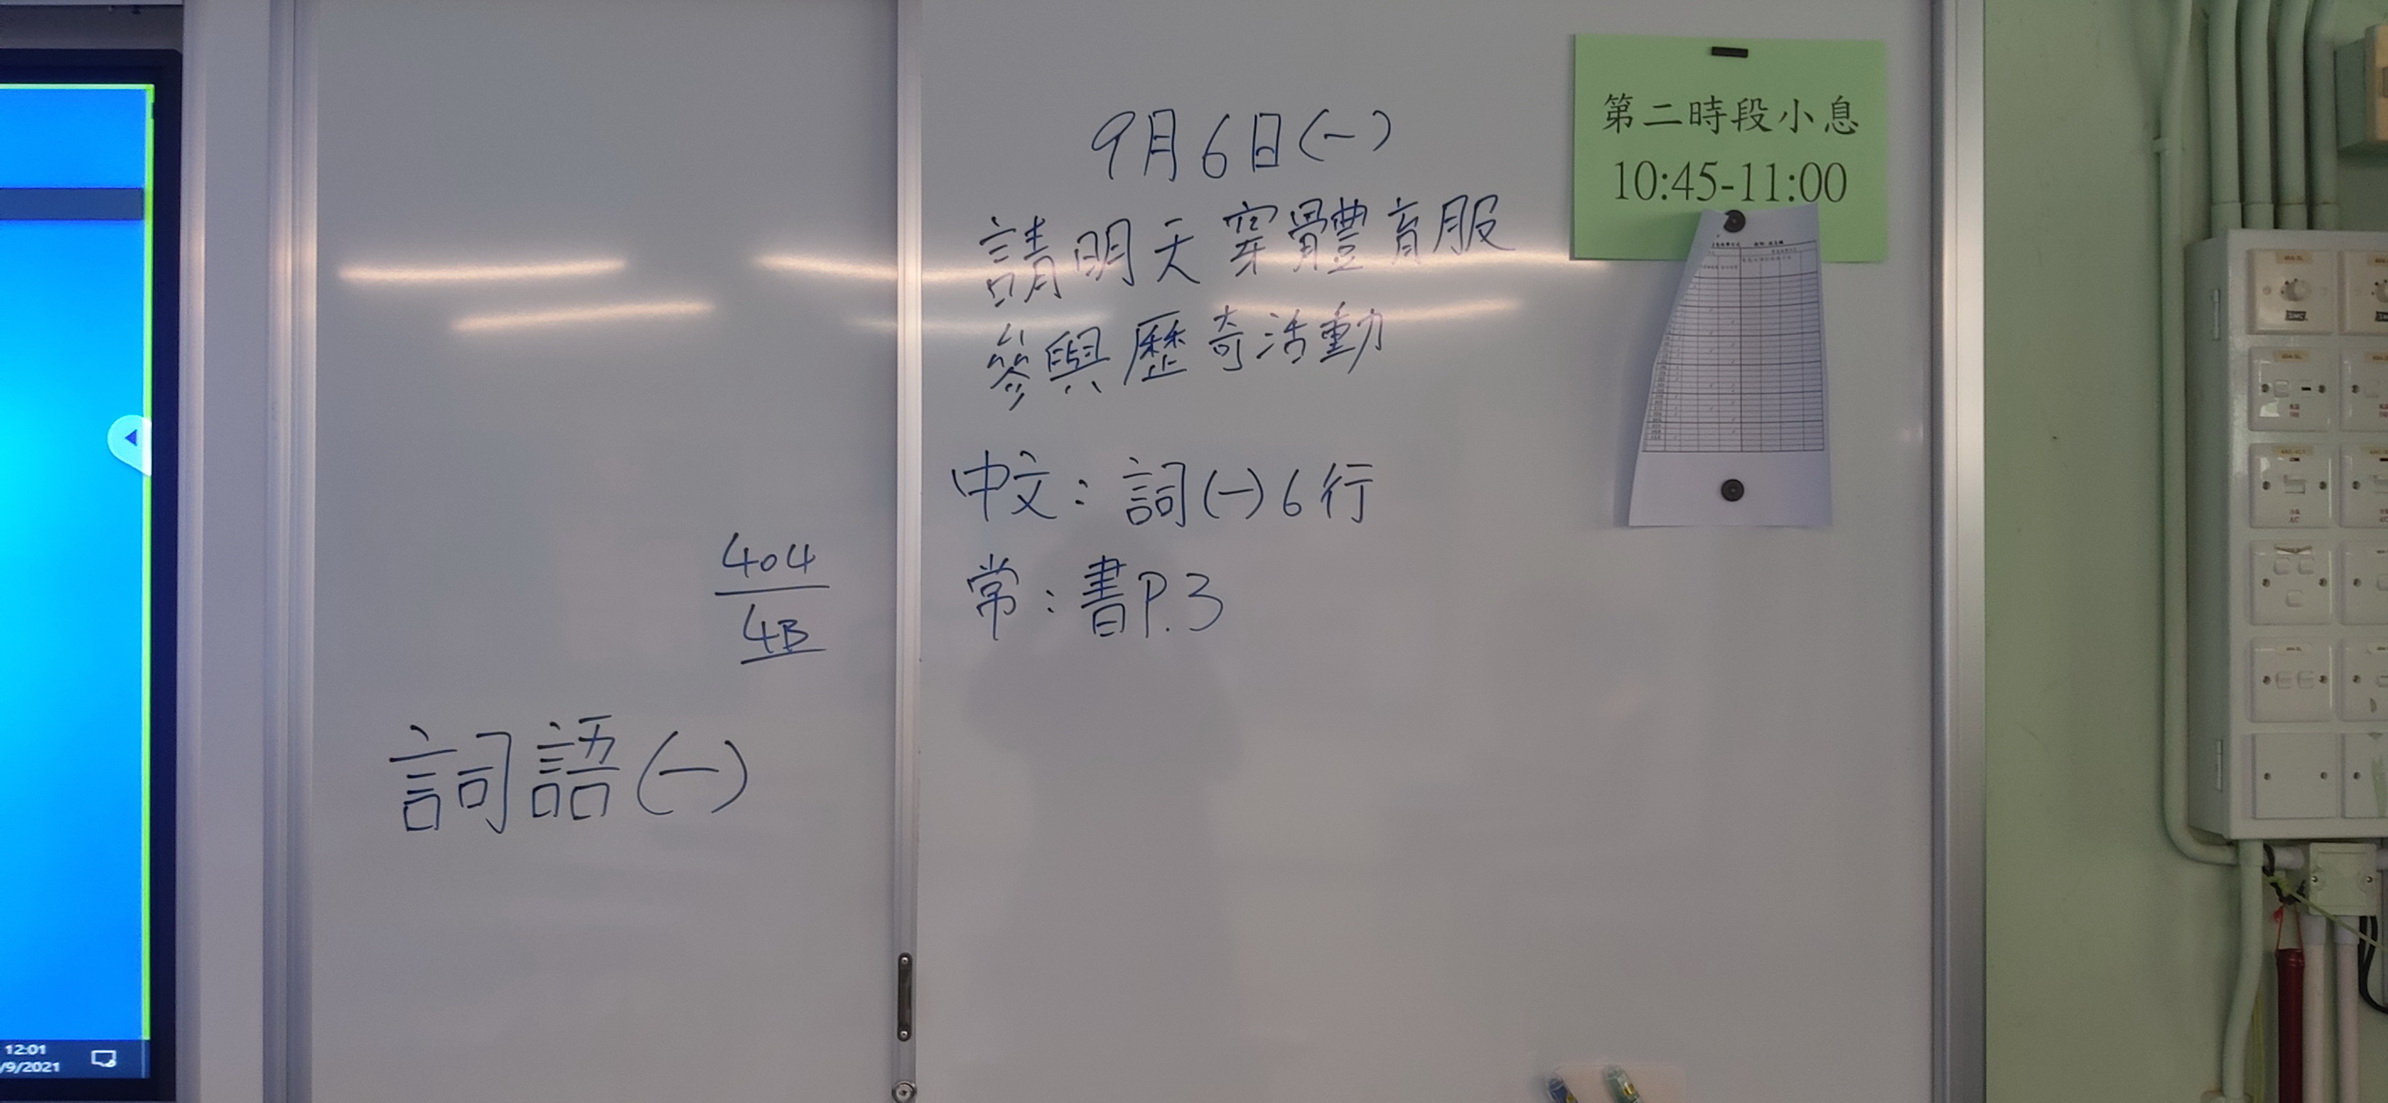 404
4B
詞語(一)
9月6日(一)
請明天穿體育服
參與歷奇活動
中文：詞(一)6行
常：書P.3
第二時段小息
10:45-11:00
12:01
/9/2021